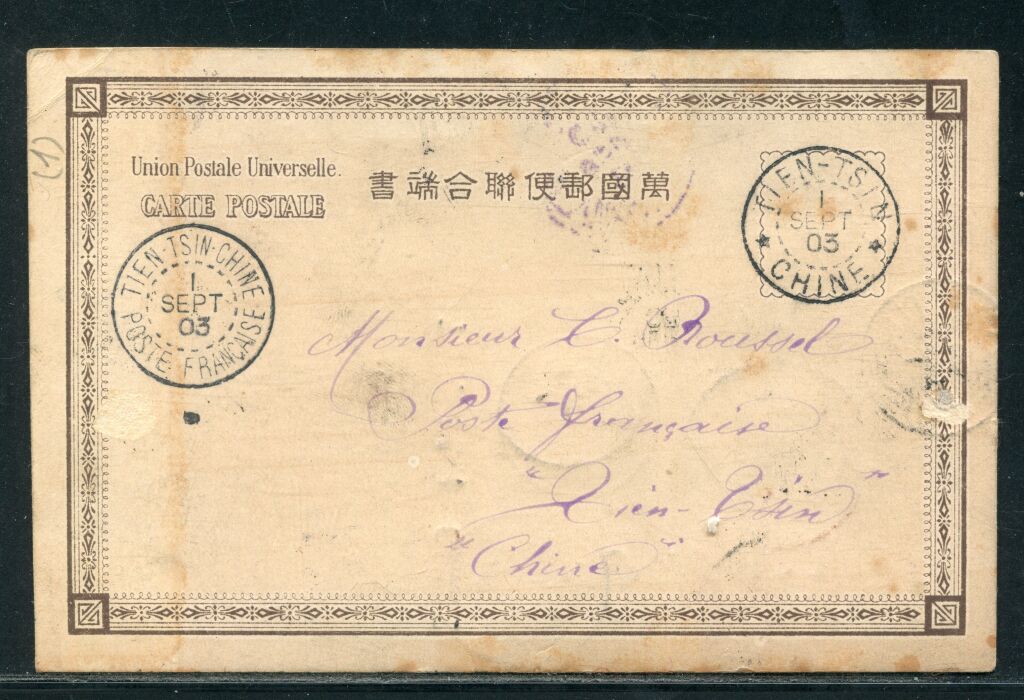 (1)
Union Postale Universelle.
CARTE POSTALE
書端聯合便郵國萬
TIEN-TSIN-CHINE
1
SEPT
03
POSTE FRANÇAISE
TIEN-TSIN
1
SEPT
03
CHINE
Monsieur C. Roussel
Poste française
"Tien-Tsin"
"Chine"